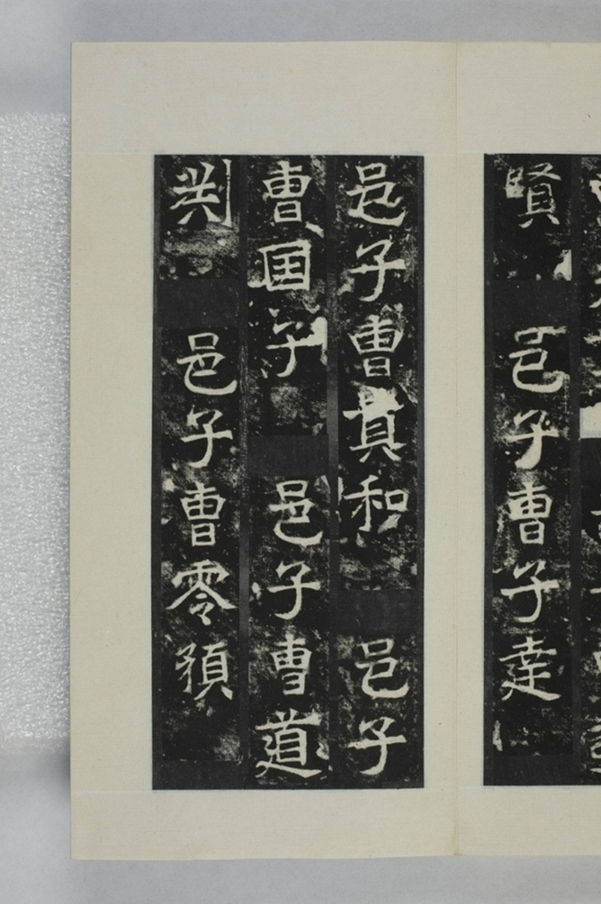 賢 邑子曹子達
邑子曹真和 邑子
曹囯子 邑子曹道
邑子曹零須